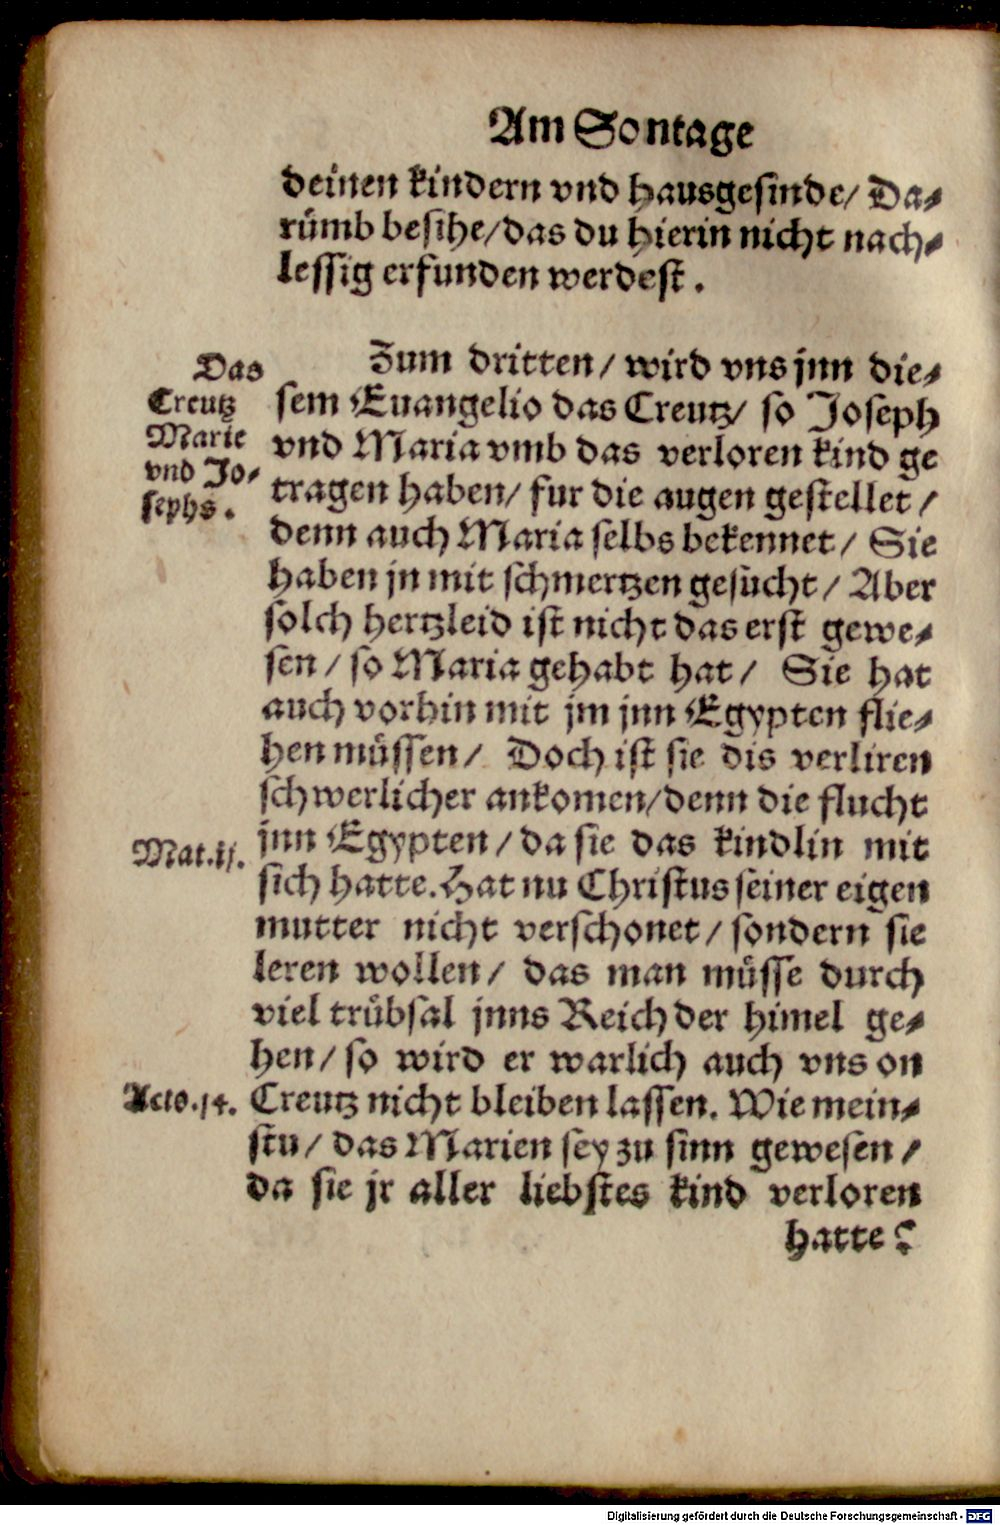 Am Sontage
deinen kindern vnd hausgesinde/ Da-
rümb besihe/das du hierin nicht nach-
lessig erfunden werdest.
Das
Creutz
Marie
vnd Jo-
sephs.
Zum dritten/ wird vns jnn die-
sem Euangelio das Creutz/ so Joseph
vnd Maria vmb das verloren kind ge
tragen haben/ fur die augen gestellet/
denn auch Maria selbs bekennet/ Sie
haben jn mit schmertzen gesücht/ Aber
solch hertzleid ist nicht das erst gewe-
sen/ so Maria gehabt hat/ Sie hat
auch vorhin mit jm jnn Egypten flie-
hen müssen/ Doch ist sie dis verliren
schwerlicher ankomen/denn die flucht
Mat.ij.
jnn Egypten/ da sie das kindlin mit
sich hatte. Hat nu Christus seiner eigen
mutter nicht verschonet/ sondern sie
leren wollen/ das man müsse durch
viel trübsal jnns Reich der himel ge-
hen/ so wird er warlich auch vns on
Acto.14.
Creutz nicht bleiben lassen. Wie mein-
stu/ das Marien sey zu sinn gewesen/
da sie jr aller liebstes kind verloren
hatte?
Digitalisierung gefördert durch die Deutsche Forschungsgemeinschaft - DFG